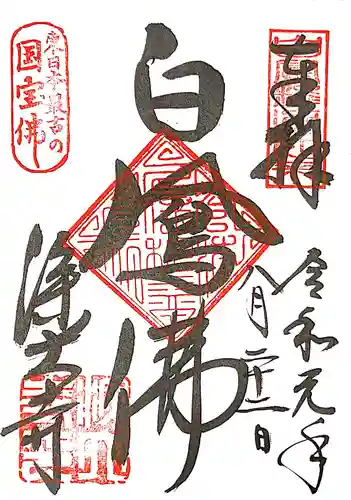 奉拝
令和元年
八月二十一日
白鳳佛
東日本最古の
国宝佛
深大寺